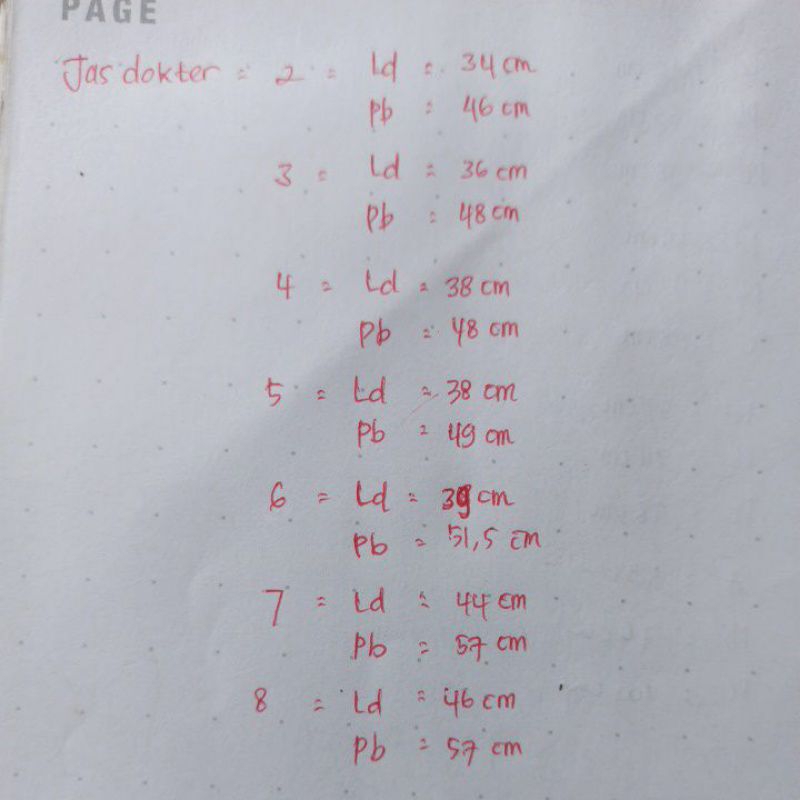 PAGE
Jas dokter = 2 = Ld = 34 cm
Pb = 46 cm
3 = Ld = 36 cm
Pb = 48 cm
4 = Ld = 38 cm
Pb = 48 cm
5 = Ld = 38 cm
Pb = 49 cm
6 = Ld = 39 cm
Pb = 51,5 cm
7 = Ld = 44 cm
Pb = 57 cm
8 = Ld = 46 cm
Pb = 57 cm